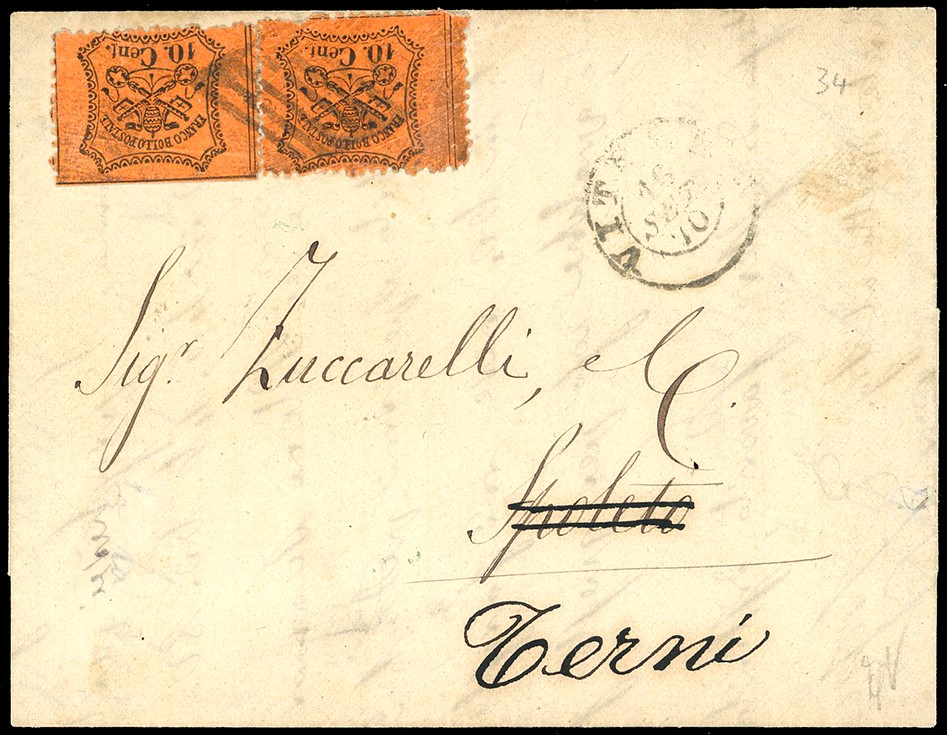 10. Cent. 10. Cent.
FRANCO BOLLO POSTALE FRANCO BOLLO POSTALE
34
SET
70
Sigr. Zuccarelli, e C.
Spoleto
Terni